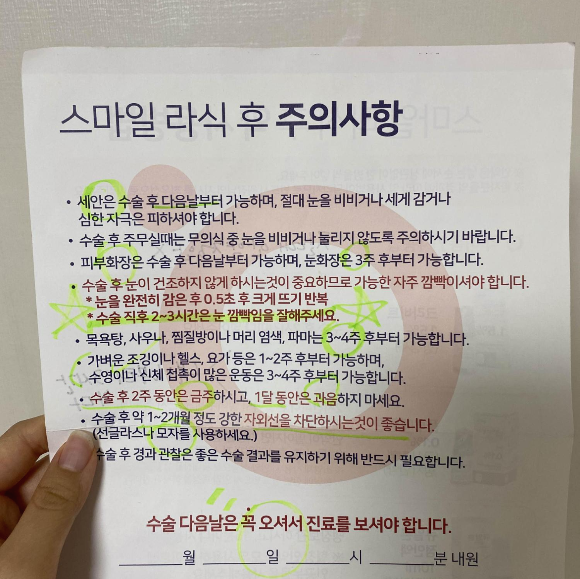 스마일 라식 후 주의사항
• 세안은 수술 후 다음날부터 가능하며, 절대 눈을 비비거나 세게 감거나
심한 자극은 피하셔야 합니다.
• 수술 후 주무실때는 무의식 중 눈을 비비거나 눌리지 않도록 주의하시기 바랍니다.
• 피부화장은 수술 후 다음날부터 가능하며, 눈화장은 3주 후부터 가능합니다.
• 수술 후 눈이 건조하지 않게 하시는것이 중요하므로 가능한 자주 깜빡이셔야 합니다.
* 눈을 완전히 감은 후 0.5초 후 크게 뜨기 반복
* 수술 직후 2~3시간은 눈 깜빡임을 잘해주세요.
• 목욕탕, 사우나, 찜질방이나 머리 염색, 파마는 3~4주 후부터 가능합니다.
• 가벼운 조깅이나 헬스, 요가 등은 1~2주 후부터 가능하며,
수영이나 신체 접촉이 많은 운동은 3~4주 후부터 가능합니다.
• 수술 후 2주 동안은 금주하시고, 1달 동안은 과음하지 마세요.
• 수술 후 약 1~2개월 정도 강한 자외선을 차단하시는것이 좋습니다.
(선글라스나 모자를 사용하세요.)
수술 후 경과 관찰은 좋은 수술 결과를 유지하기 위해 반드시 필요합니다.
수술 다음날은 꼭 오셔서 진료를 보셔야 합니다.
______월 ______일 ______시 ______분 내원